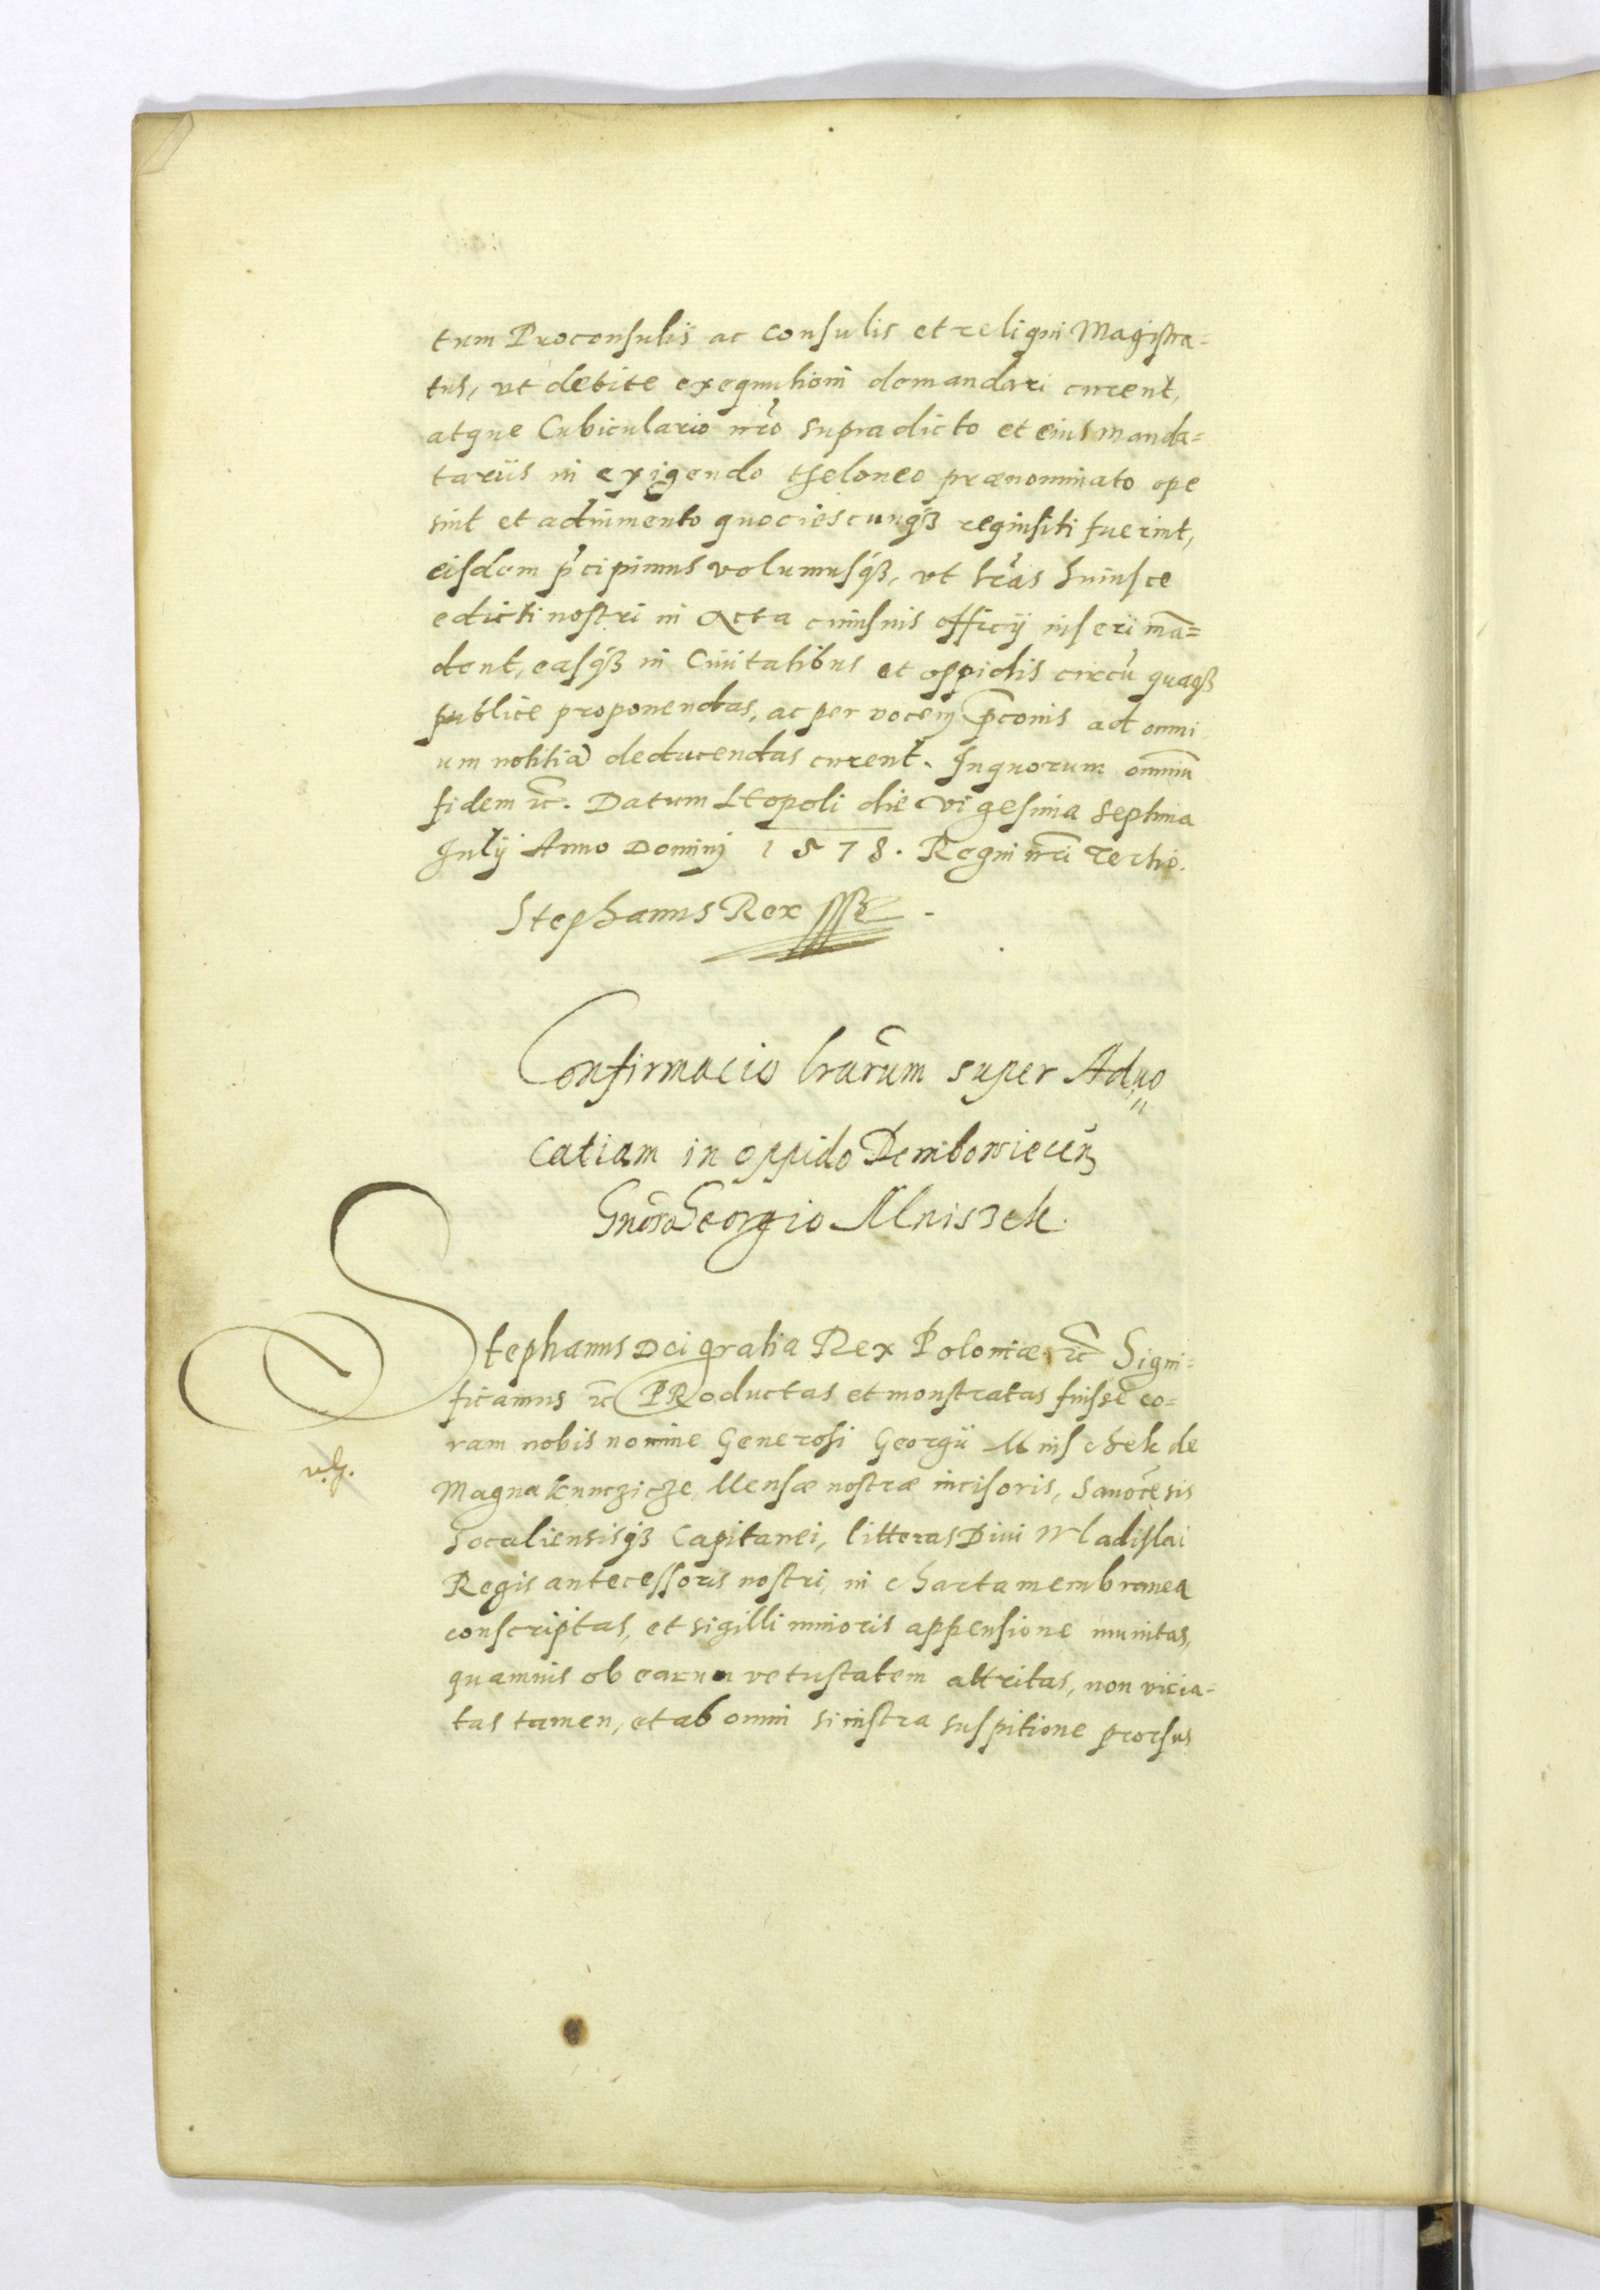 tum Proconsulis ac Consulis et reliqui Magistra=
tus, vt debite exequutioni domandari curent,
atque Cubiculario nr̃o supradicto et eius manda=
tariis in exigendo theloneo prænominato ope
sint et adiumento quociescunqȝ requisiti fuerint,
eisdem p̃cipimus volumusqȝ, vt lr̃as huiusce
edicti nostri in Acta cuiusuis officij inseri mã=
dent, easqȝ in Ciuitatibus et oppidis circũ quaqȝ
publice proponendas, ac per vocem p̃conis ad omni
um notitiã deducendas curent. In quorum omniũ
fidem ꝛc̃. Datum Leopoli die vigesima septima
Julij Anno Domini 1578. Regni nr̃i Tertio.
Stephanus Rex
Confirmacio lrãrum super Aduo
catiam in oppido Dembowiecen̄
Gnõso Georgio Mniszek.
Stephanus Dei gratia Rex Poloniæ ꝛc̃ Signi=
ficamus ꝛc̃ PRoductas et monstratas fuisse co=
ram nobis nomine Generosi Georgii Mnischek de
Magna Kunczicze Mensæ nostræ incisoris, Sanocẽsis
Socaliensisqȝ Capitanei, litteras Diui Wladislai
Regis antecessoris nostri, in charta membranea
conscriptas, et sigilli minoris appensione munitas,
quamuis ob earum vetustatem attritas, non vicia=
tas tamen, et ab omni sinistra suspitione prorsus